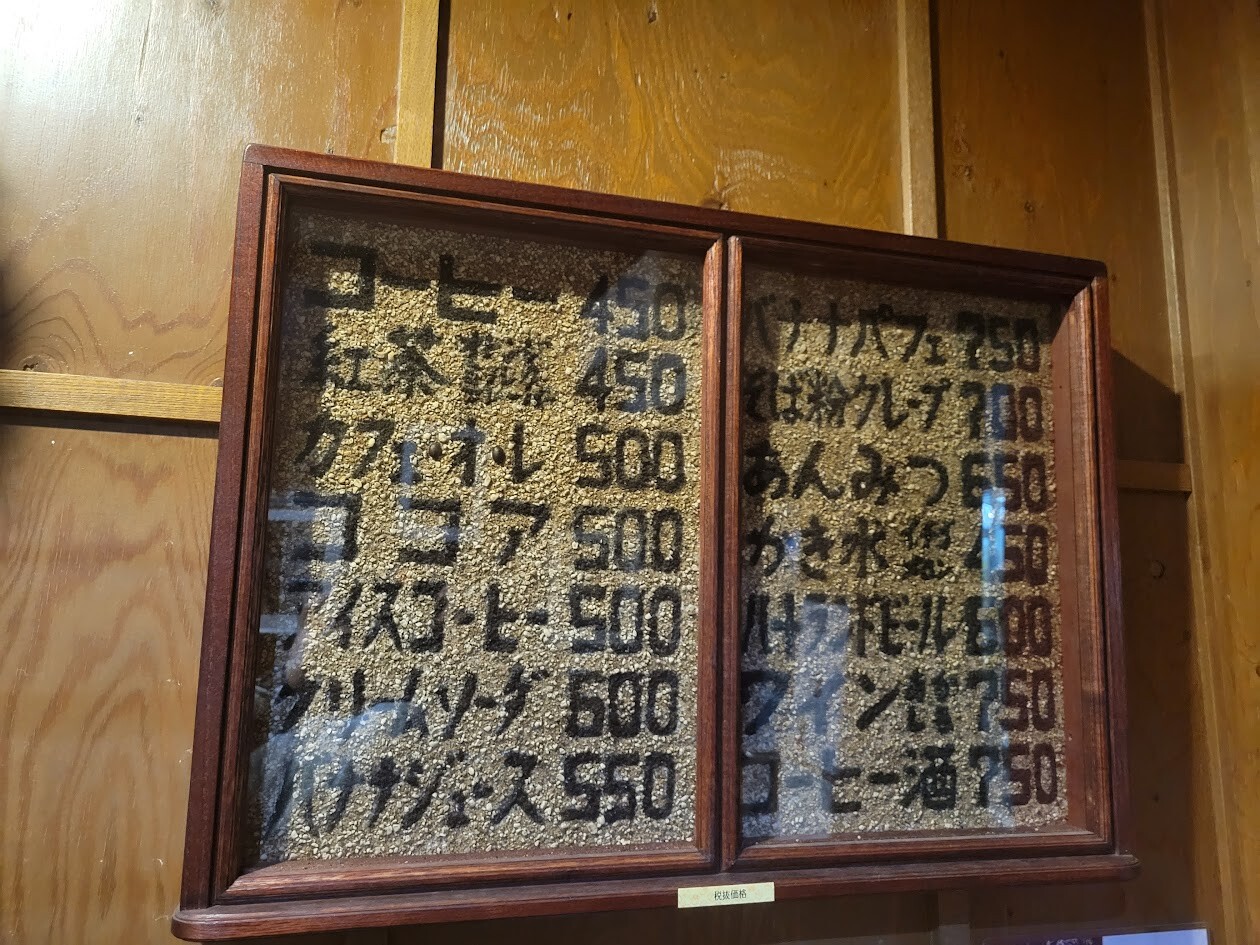 コーヒー 450
紅茶 450
カフェ・オ・レ 500
ココア 500
アイスコーヒー 500
クリームソーダ 600
バナナジュース 550
バナナパフェ 750
そば粉クレープ 700
あんみつ 650
かき氷 450
ハートランドビール 600
ワイン 750
コーヒー酒 750
税抜価格